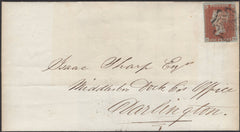 Isaac Sharp Esqr
Middlesbro Dock Co's Office
Darlington.